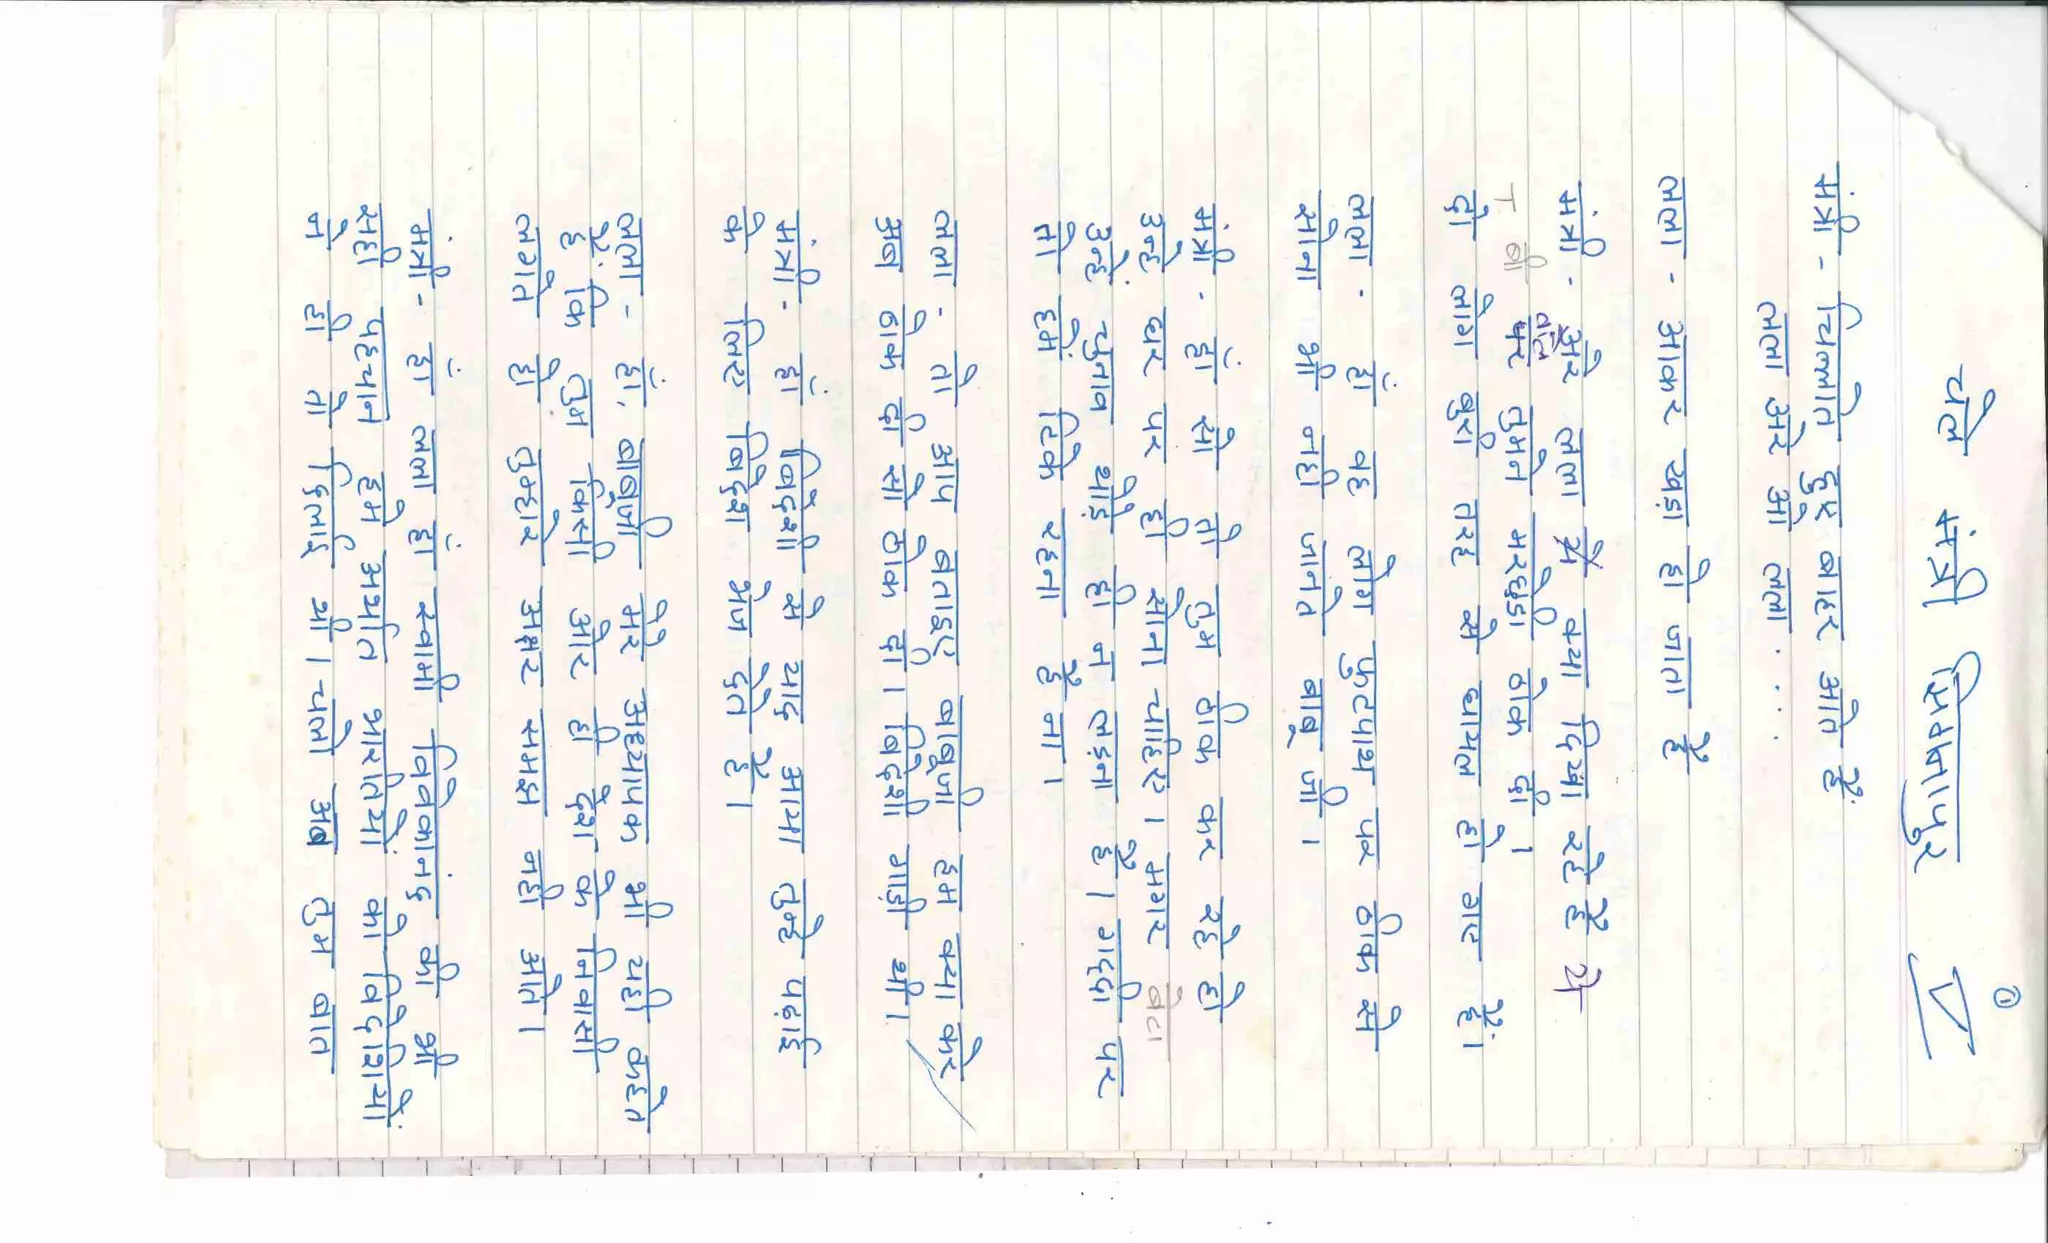 ①
चलें मंत्री भिक्कनापुर V
मंत्री - चिल्लाते हुए बाहर आते हैं
लला अरे ओ लला . . .
लला - आकर खड़ा हो जाता है
मंत्री - अरे लला ये क्या दिखा रहे है रे
बोल
T बी पर तुमने भरहुडी ठोक दी ।
दो लोग बुरी तरह से घायल हो गए हैं।
लला - हां वह लोग फुटपाथ पर ठीक से
सोना भी नही जानते बाबू जी ।
मंत्री - हां सो तो तुम ठीक कर रहे हो
उन्हे घर पर ही सोना चाहिए । मगर बेटा
उन्हें चुनाव थोड़े ही न लड़ना है। गद्दी पर
तो हमें टिके रहना है ना ।
लला - तो आप बताइए बाबूजी हम क्या करे
अब ठोक दी सो ठोक दी । विदेशी गाड़ी थी।
मंत्री - हां विदेशी से याद आया तुम्हे पढ़ाई
के लिए विदेश भेज देते है।
लला - हां, बाबूजी मेरे अध्यापक भी यही कहते
हैं कि तुम किसी और ही देश के निवासी
लगते हो तुम्हारे अक्षर समझ नही आते ।
मंत्री - हां लला हां स्वामी विवेकानंद की भी
सही पहचान हमे अर्थात भारतियों को विदेशियों
ने ही तो दिलाई थी । चलो अब तुम बात